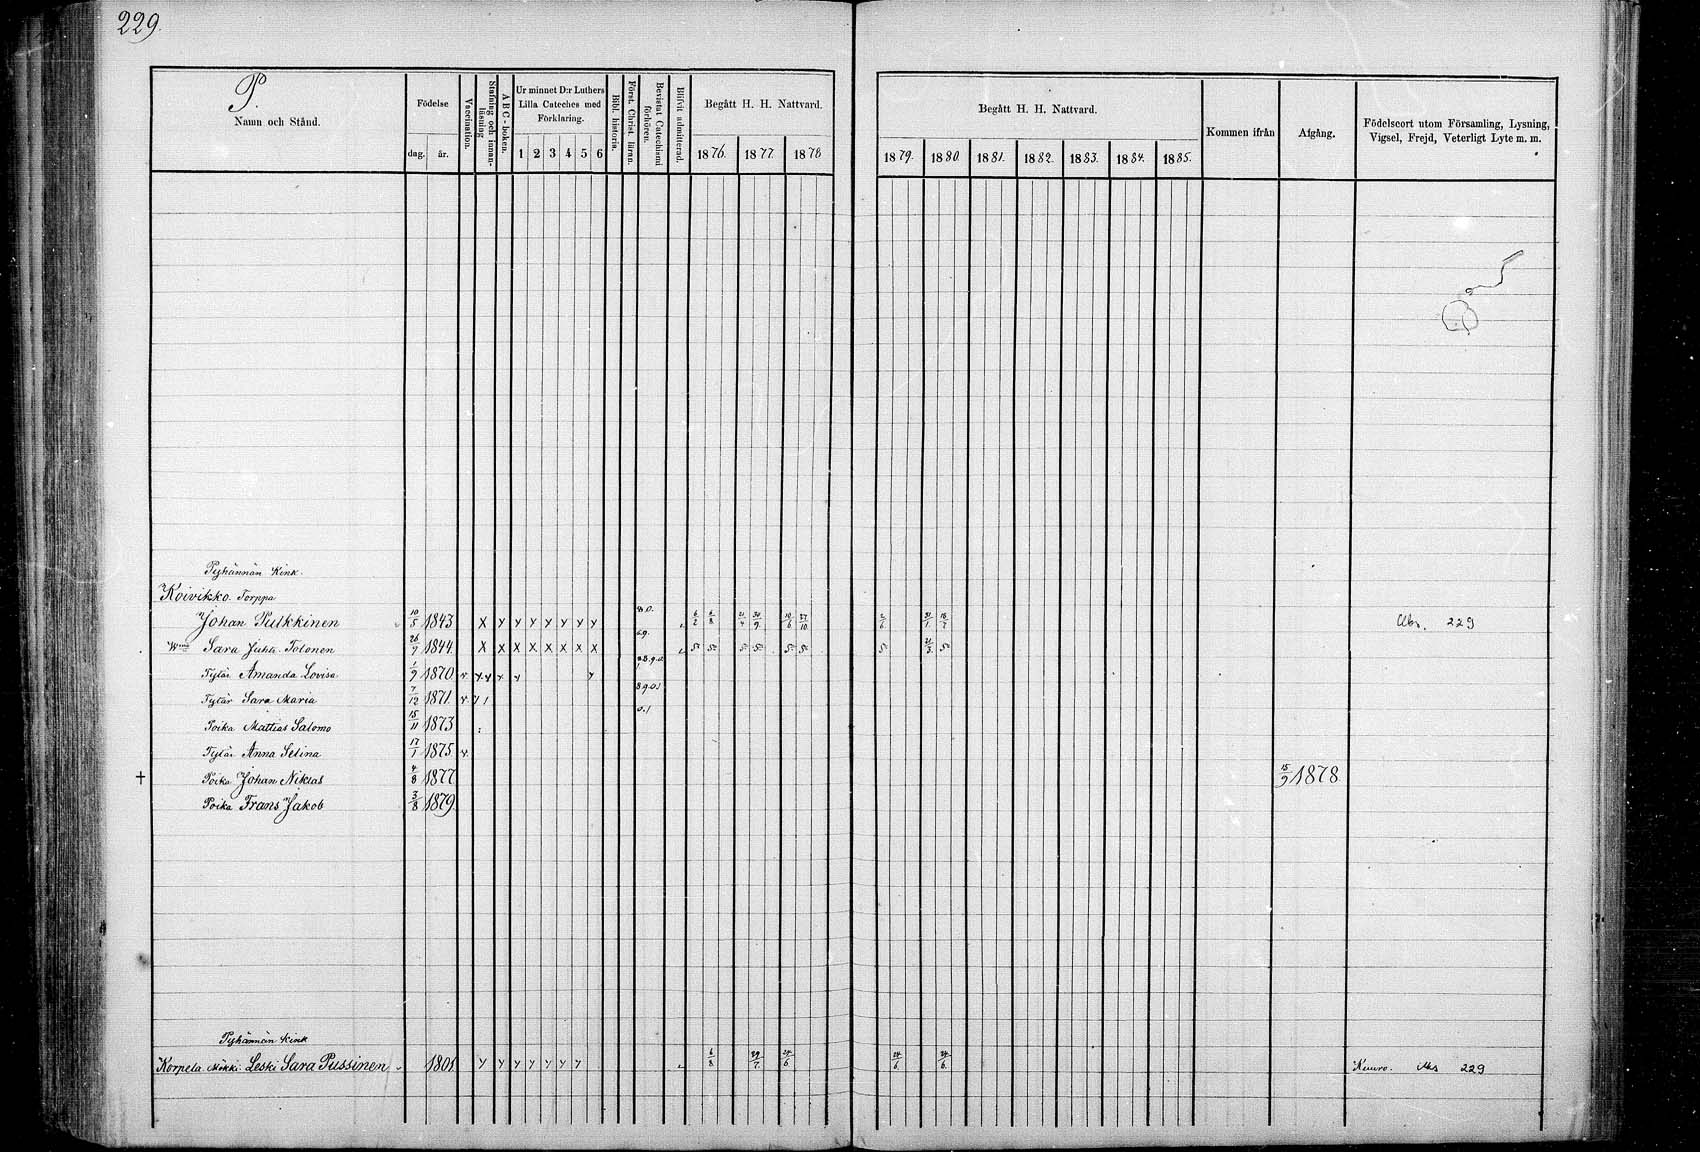 229.
P.
Namn och Stånd.
Födelse
dag. år.
Vaccination.
Stafning och innanläsning
A B C-boken.
Ur minnet D:r Luthers Lilla Cateches med Förklaring.
1 2 3 4 5 6
Bibl. historia.
Först. Christ. läran.
Bevistat Catechismi förhören.
Blifvit admitterad.
Begått H. H. Nattvard.
1876. 1877. 1878
Begått H. H. Nattvard.
1879. 1880. 1881. 1882. 1883. 1884. 1885.
Kommen ifrån
Afgång.
Födelseort utom Församling, Lysning, Vigsel, Frejd, Veterligt Lyte m. m.
Pyhännän Kink.
Koivikko Torppa
Johan Pulkkinen 10/5 1843 X y y y y y y y 6/2 6/8 21/4 30/9. 10/6 27/10. 2/6. 31/1. 18/7 229
Sara Juht. Tolonen 26/9 1844. X X X X X X X X
Tytär Amanda Lovisa 1/9 1870
Tytär Sara Maria 7/12 1871.
Poika Mattias Salomo 15/11 1873
Tytär Anna Selina 17/1 1875
† Poika Johan Niklas 4/8 1877 15/9 1878
Poika Frans Jakob 3/8 1879.
Pyhännän Kink
Korpela Mökki. Leski Sara Pussinen 1801. y y y y y y y 6/8 29/7. 24/6. 24/6. 24/6. 229